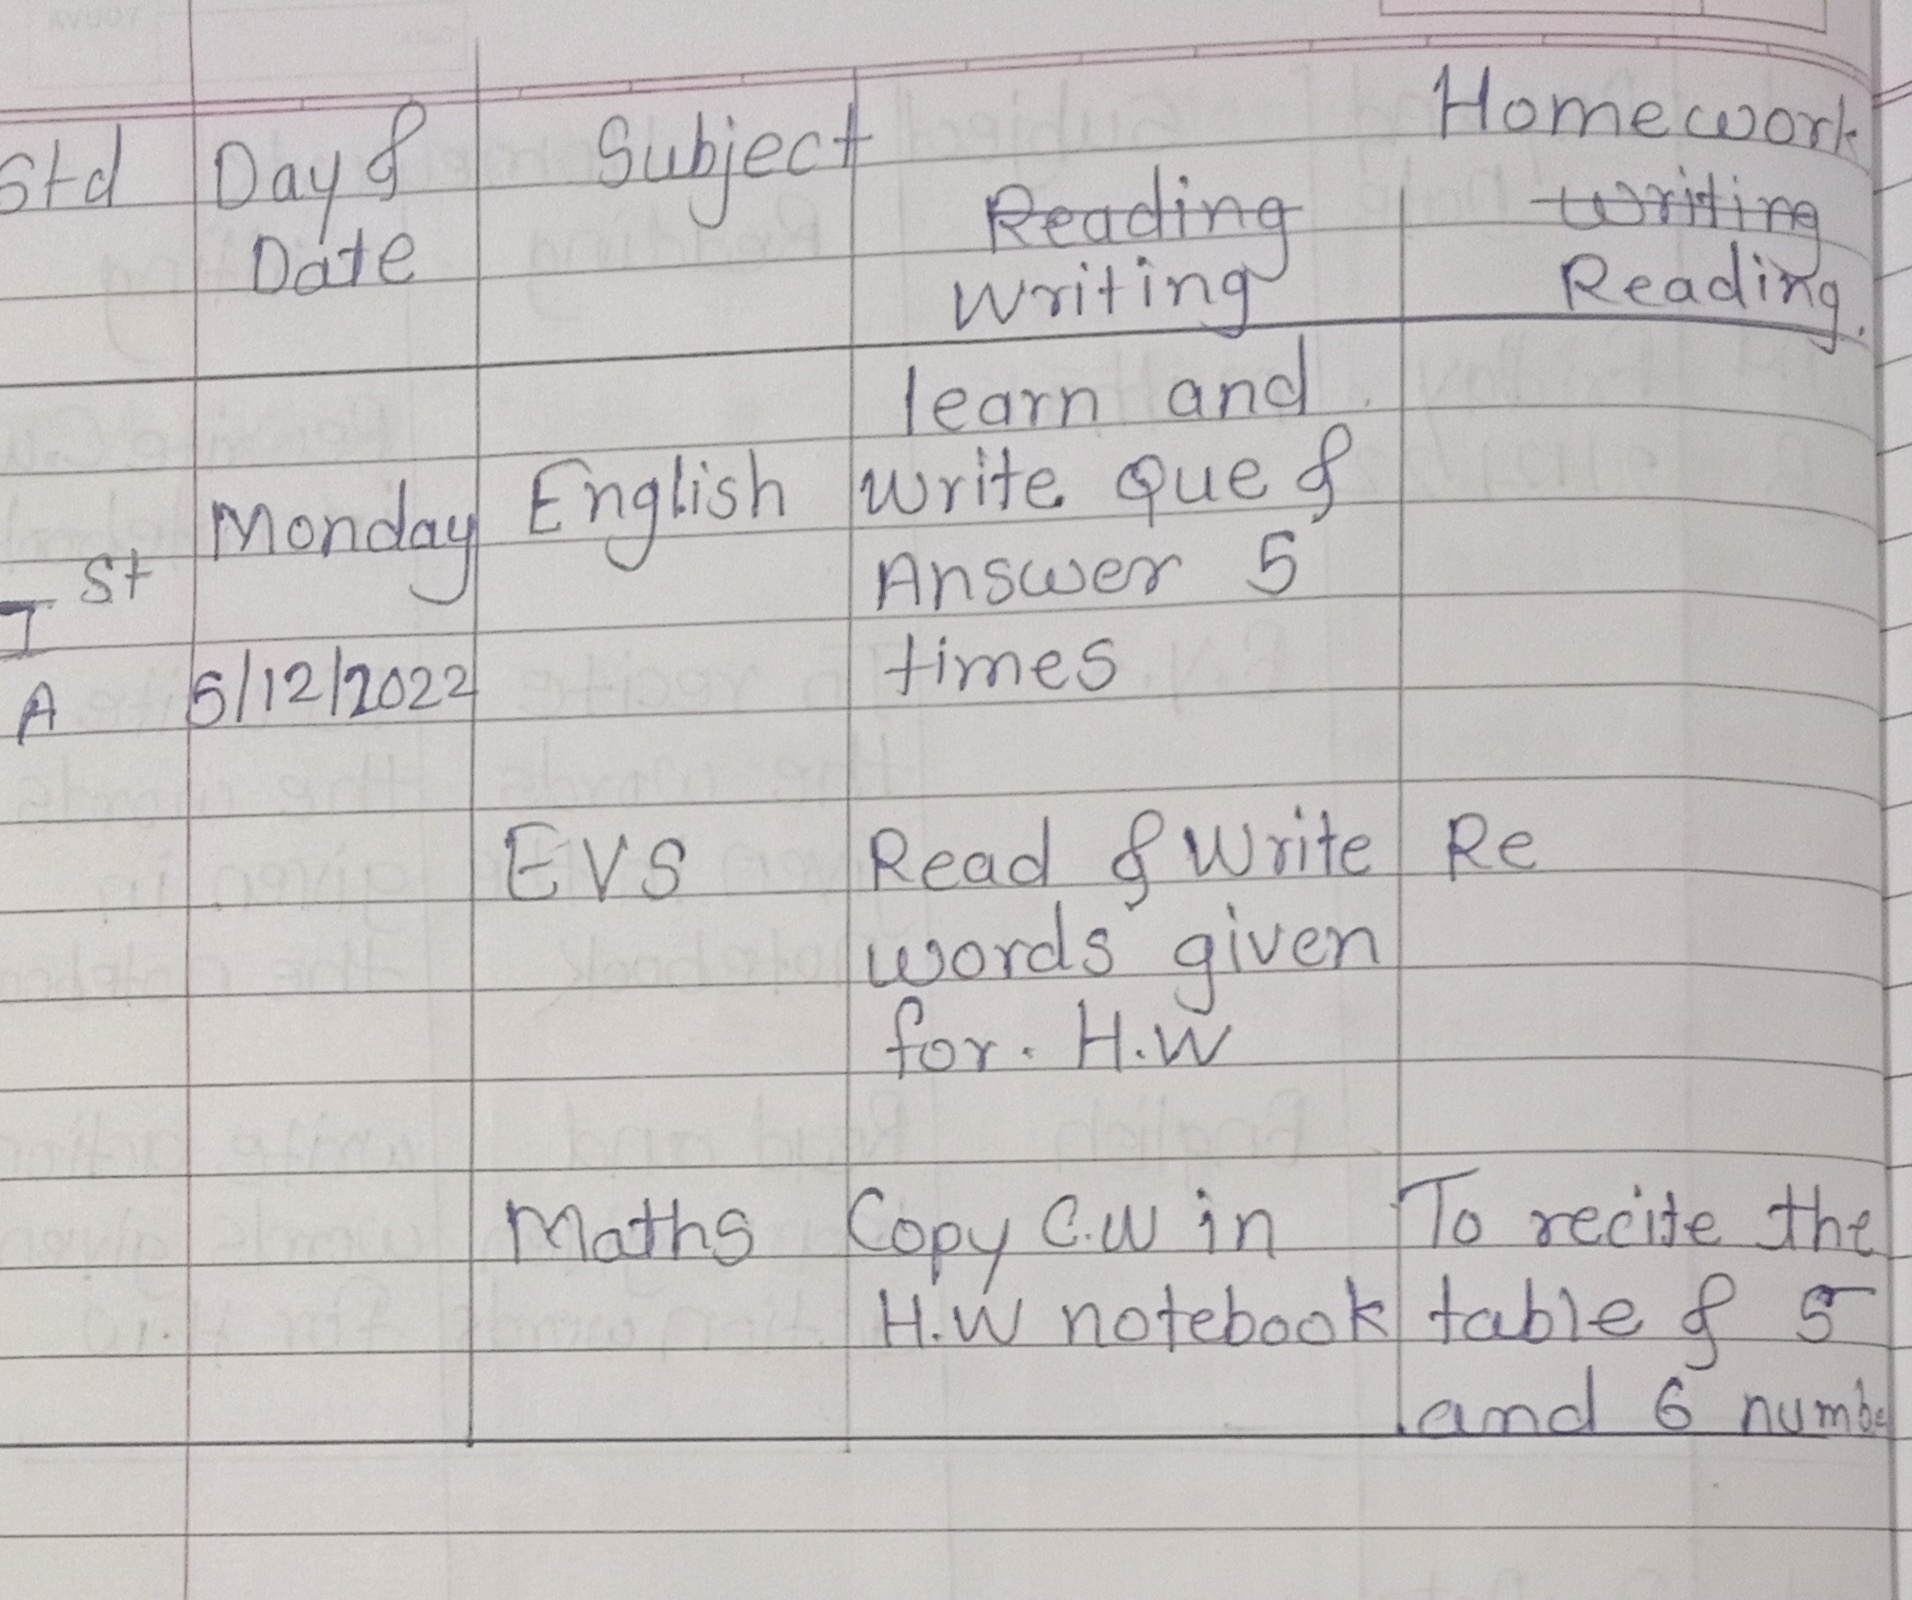 Homework
Std Day & Subject
Date
Reading Writing
Writing Reading.
learn and
Monday English Write Que &
Ist Answer 5
A 5/12/2022 times
EVS Read & Write Re
words given
for. H.W
Maths Copy C.W in To recite the
H.W notebook table & 5
and 6 numbe